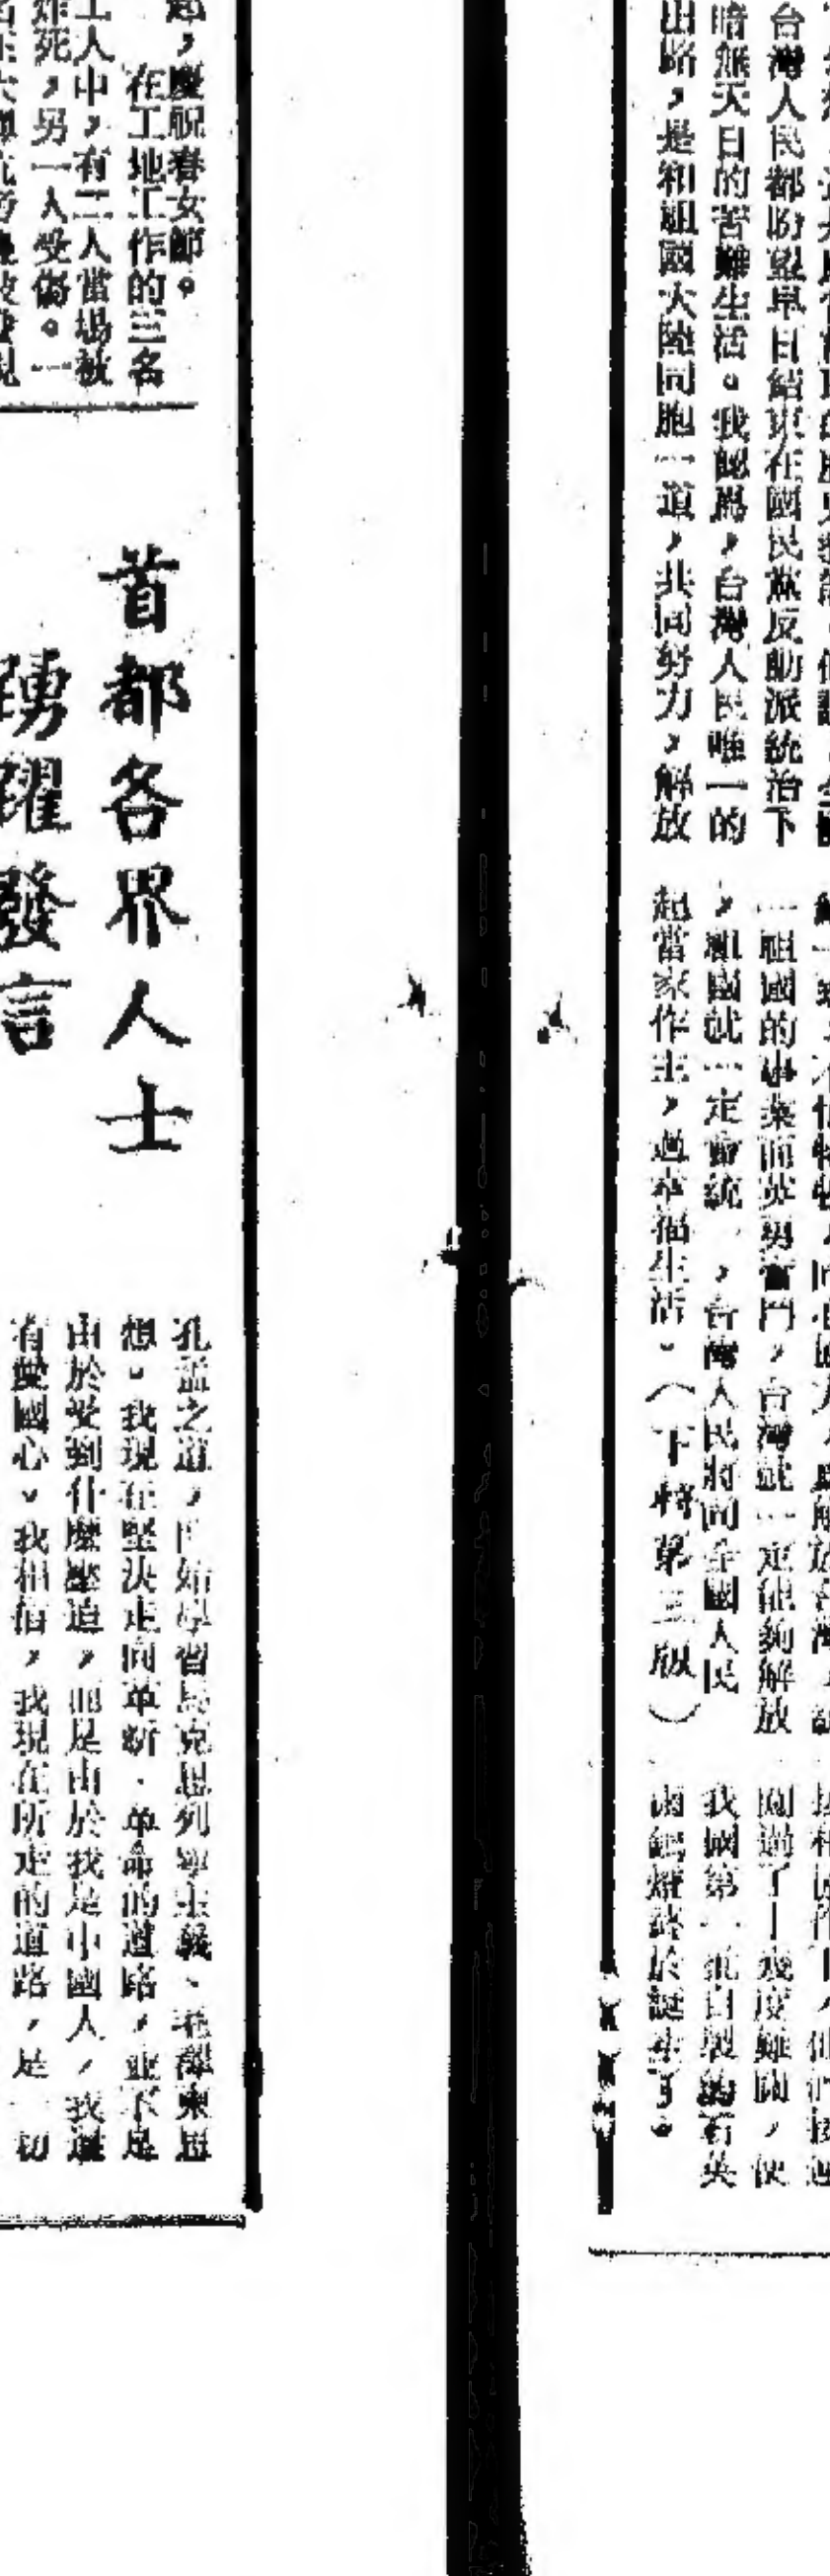 台灣人民都盼望早日結束在國民黨反動派統治下
暗無天日的苦難生活。我認爲，台灣人民唯一的
出路，是和祖國大陸同胞一道，共同努力，解放
一祖國的事業而英勇奮鬥，台灣就一定能夠解放
，祖國就一定會統一，台灣人民將同全國人民
起當家作主，過幸福生活。（下轉第三版）
闖過了一幾度難關，使
我國第一批自製的石英
鹵鎢燈終於誕生了。
慶祝春女節。
在工地工作的三名
工人中，有二人當場被
炸死，另一人受傷。一
首都各界人士
踴躍發言
孔孟之道，開始學習馬克思列寧主義、毛澤東思
想。我現在堅決走向革新、革命的道路，並不是
由於受到什麼壓迫，而是由於我是中國人，我還
有愛國心。我相信，我現在所走的道路，是一切